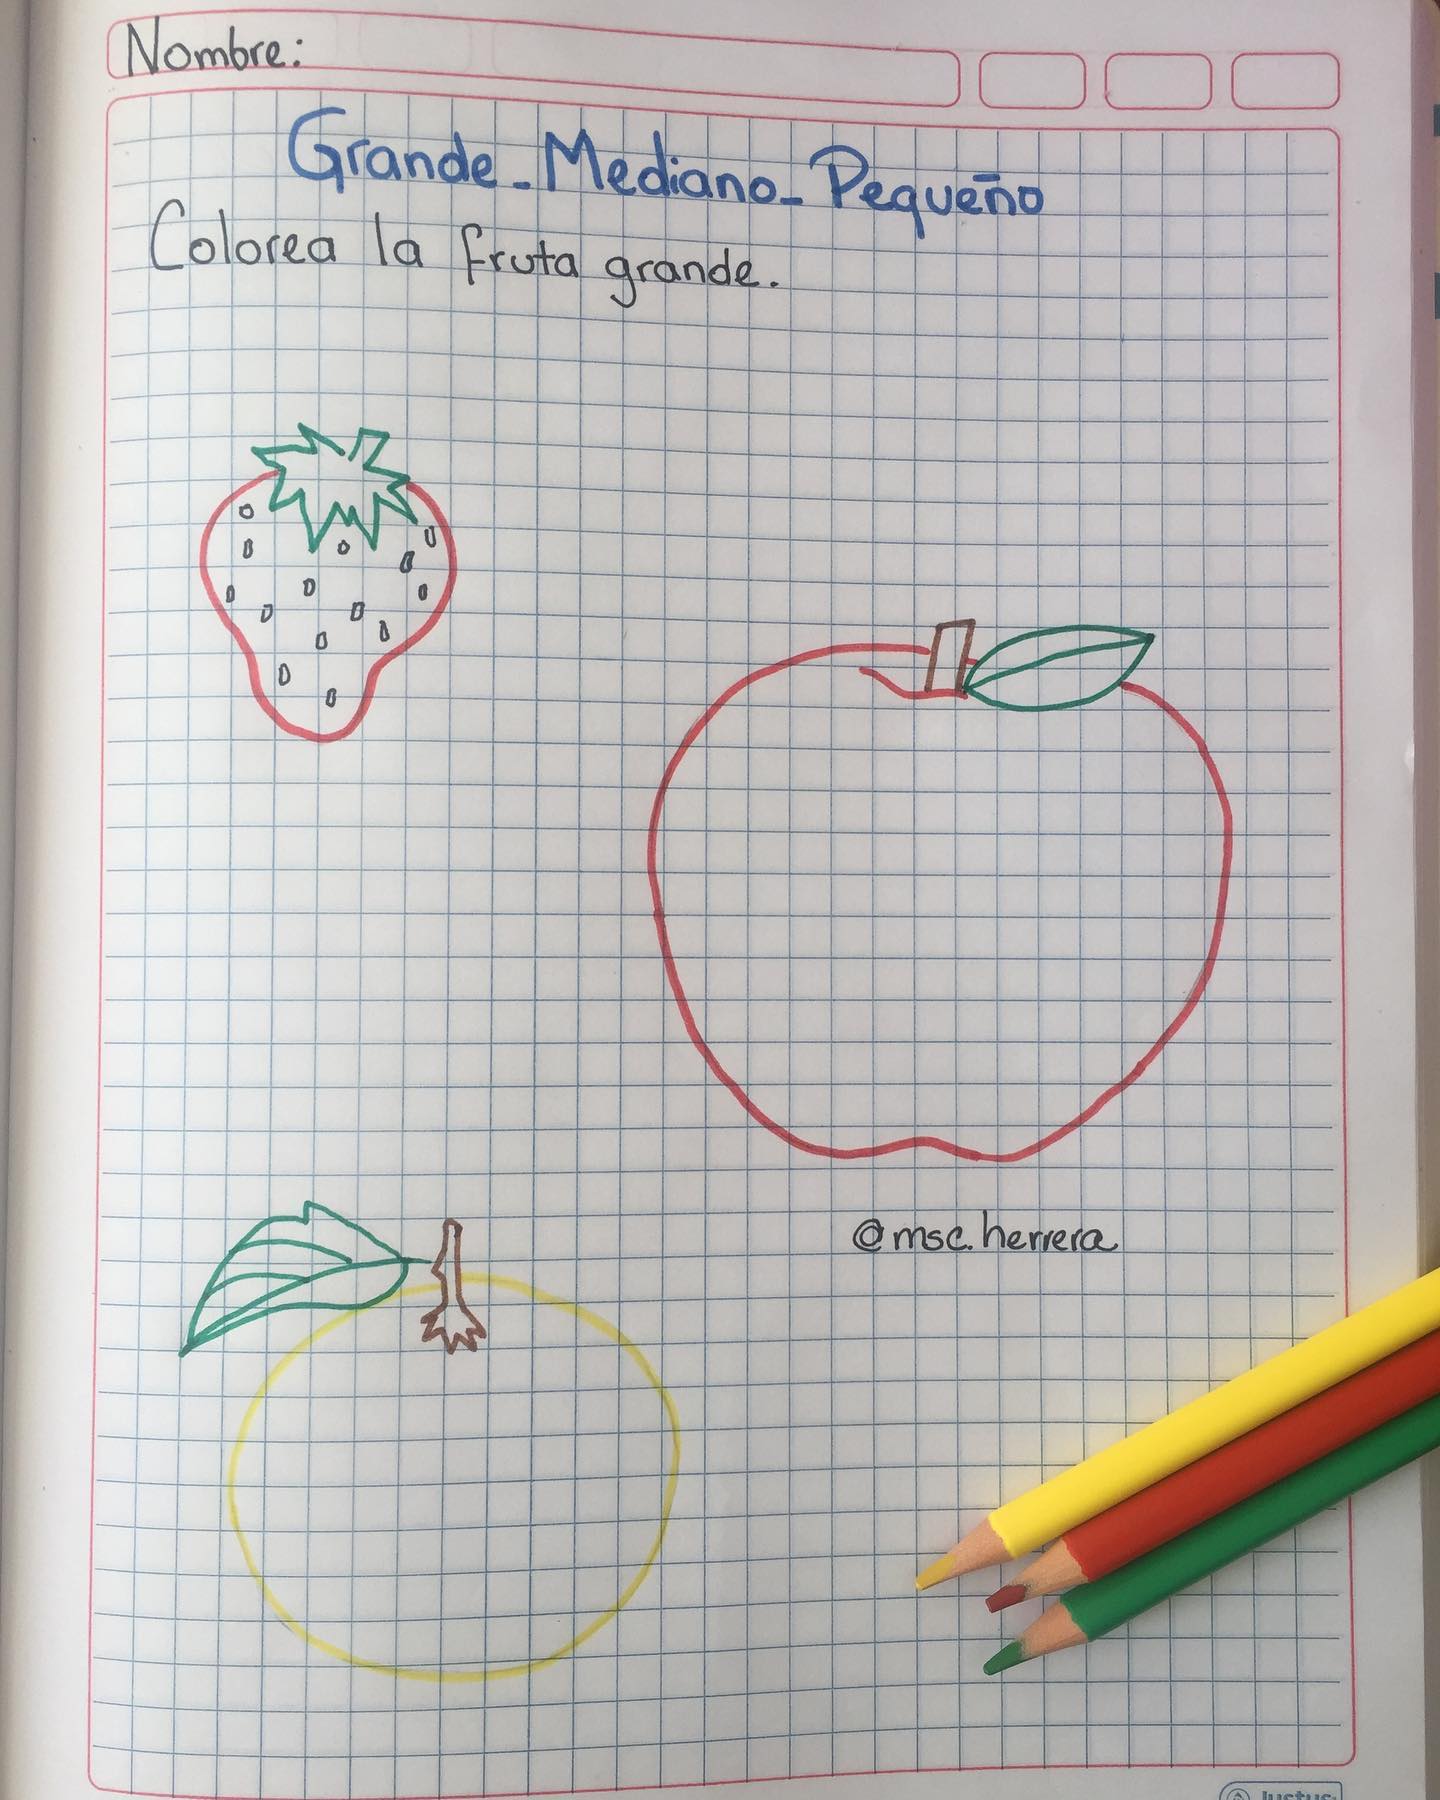 Nombre:
Grande-Mediano-Pequeño
Colorea la fruta grande.
@msc.herrera
Justus